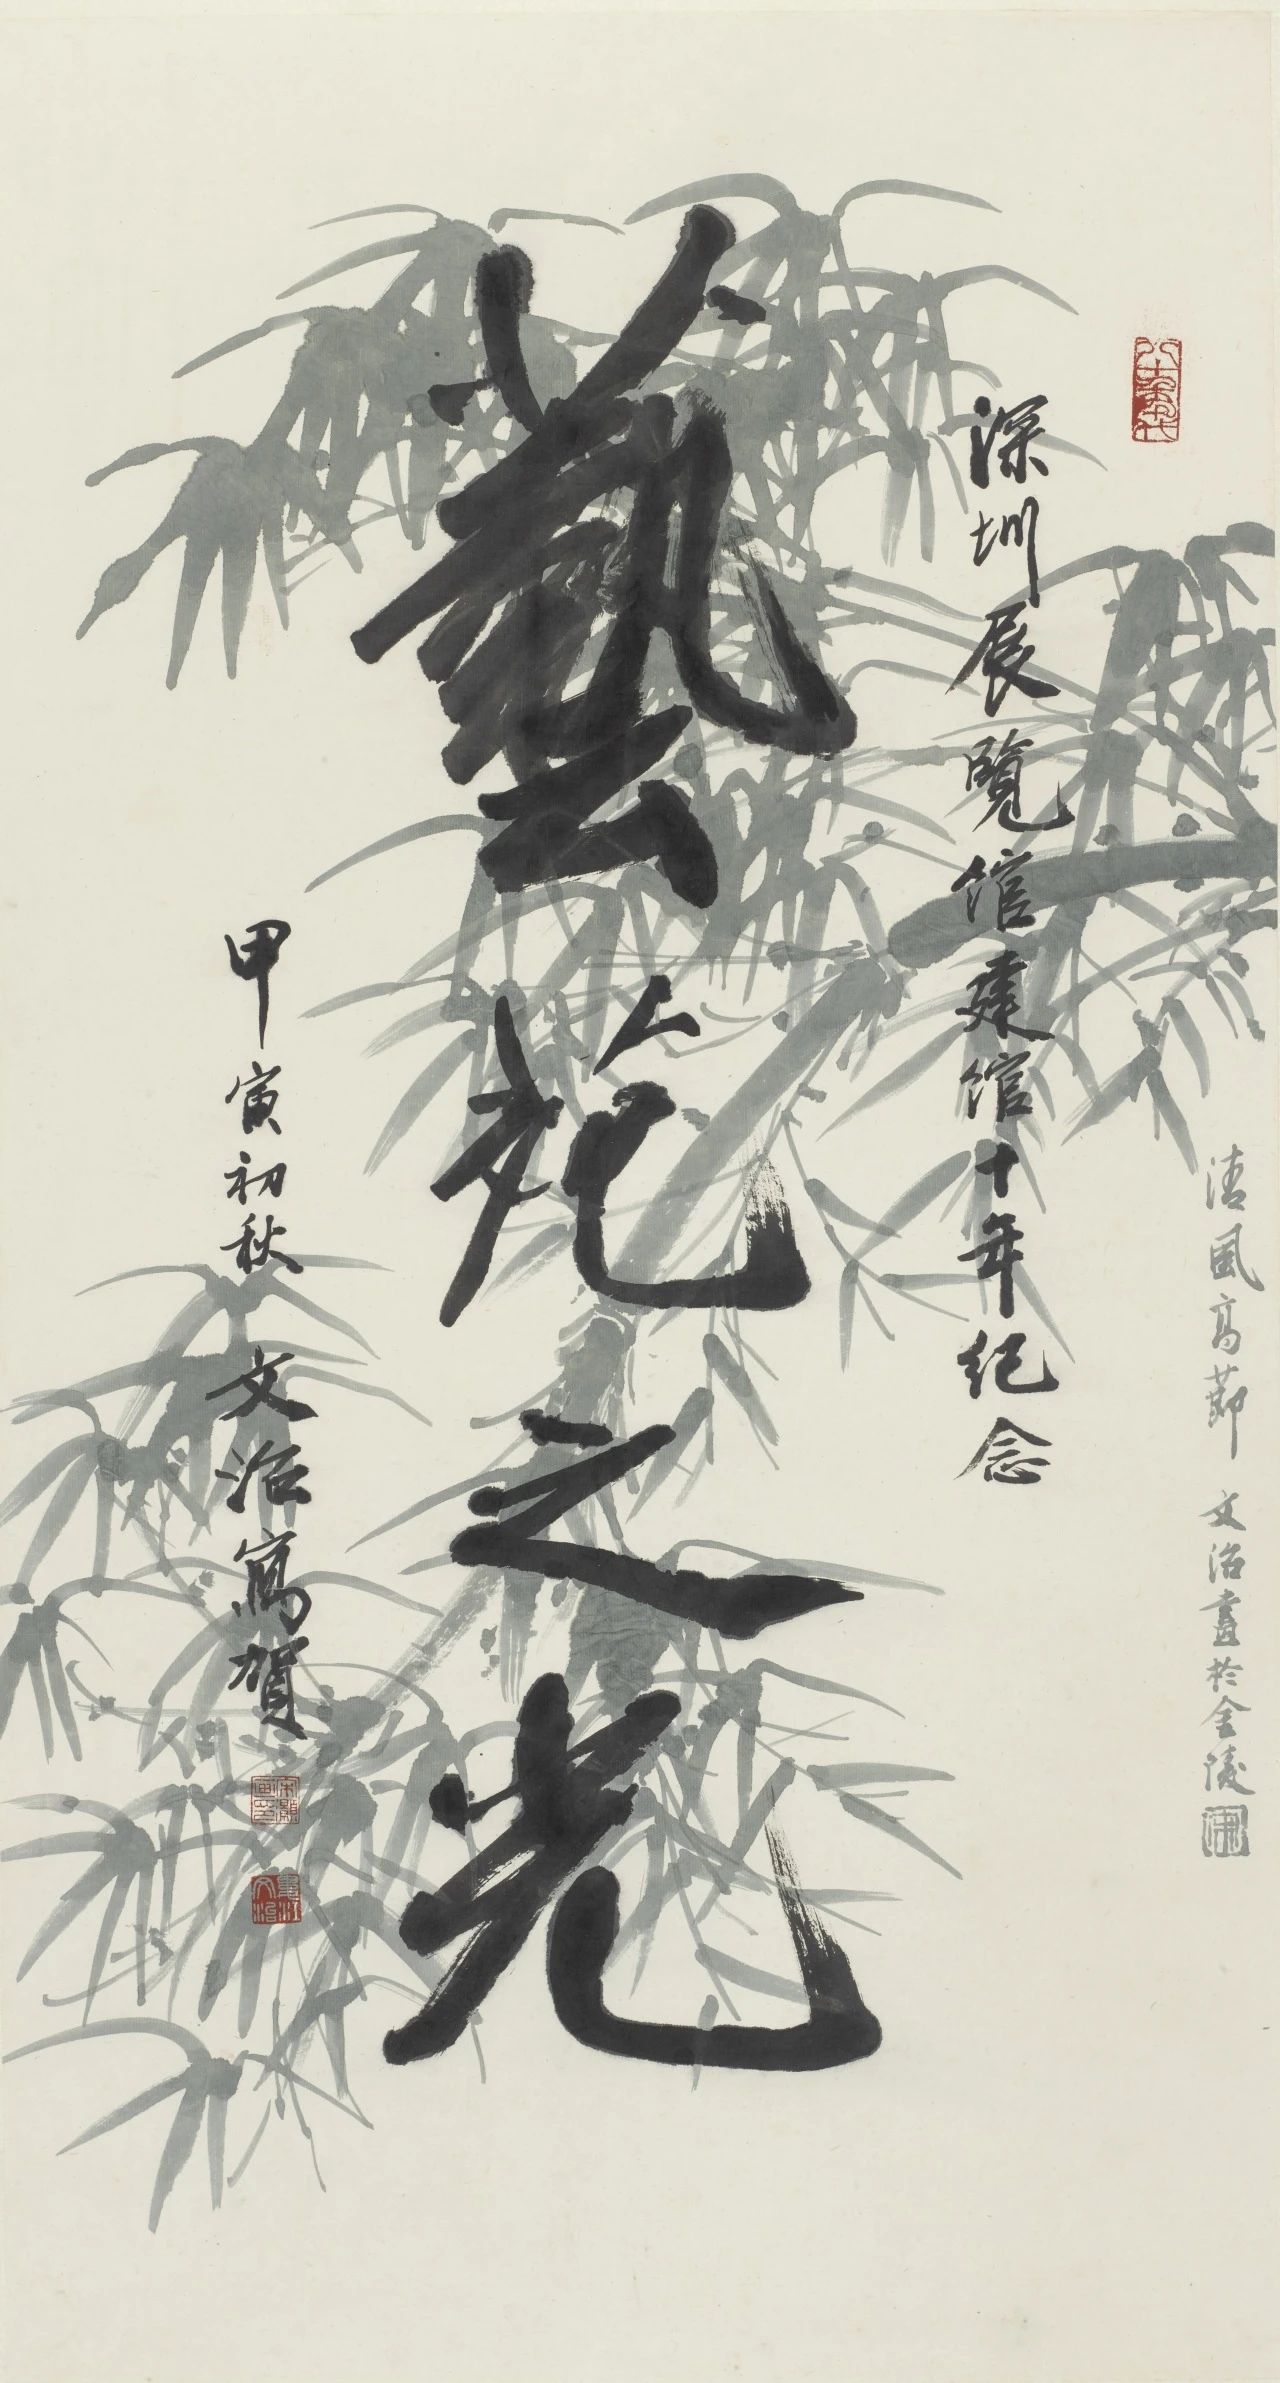 深圳展覽馆建馆十年纪念
藝苑之光
甲寅初秋 文治寫賀
清風高節 文治畫於金陵